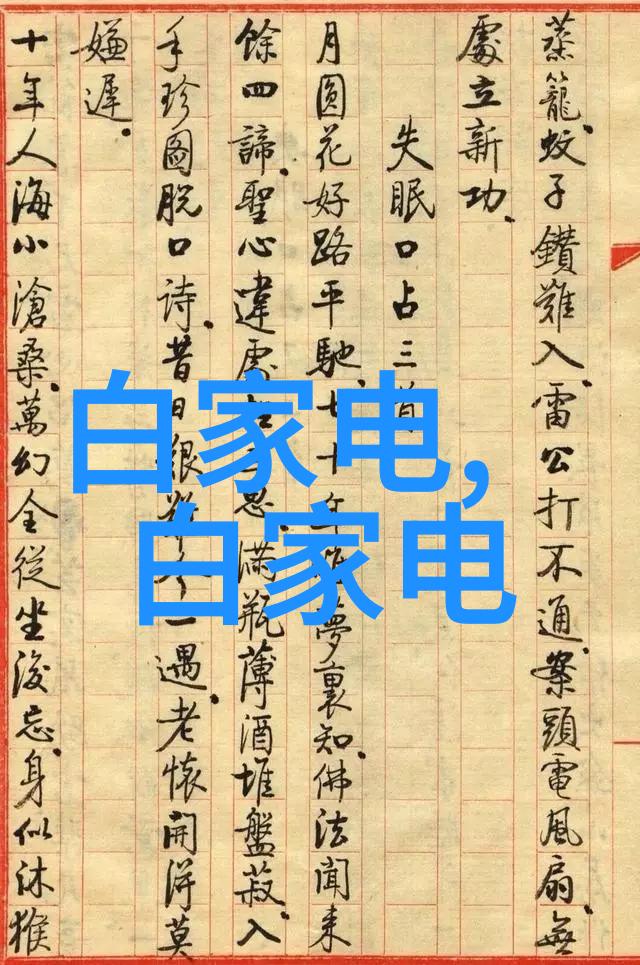 蒸籠.蚊子鑽難入.雷公打不通.案頭電風扇.無
處立新功.
失眠口占三首
月圓花好路平馳.七十年夢裏知.佛法聞来
餘四諦.聖心違處思.滿瓶薄酒堆盤菽.入
手珍圖脱口詩.昔日艱一遇.老懷開得莫
嫌遲.
十年人海小滄桑.萬幻全從坐後忘.身似沐猴
白家电,
白家电